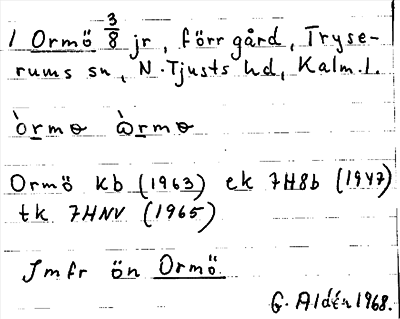 1 Ormö 3/8 jr, förr gård, Tryse-
rums sn, N. Tjusts hd, Kalm. l.
òrmɵ ὼrmɵ
Ormö kb (1963) ek 7H8b (1947)
tk 7HNV (1965)
Jmfr ön Ormö.
G. Aldén 1968.